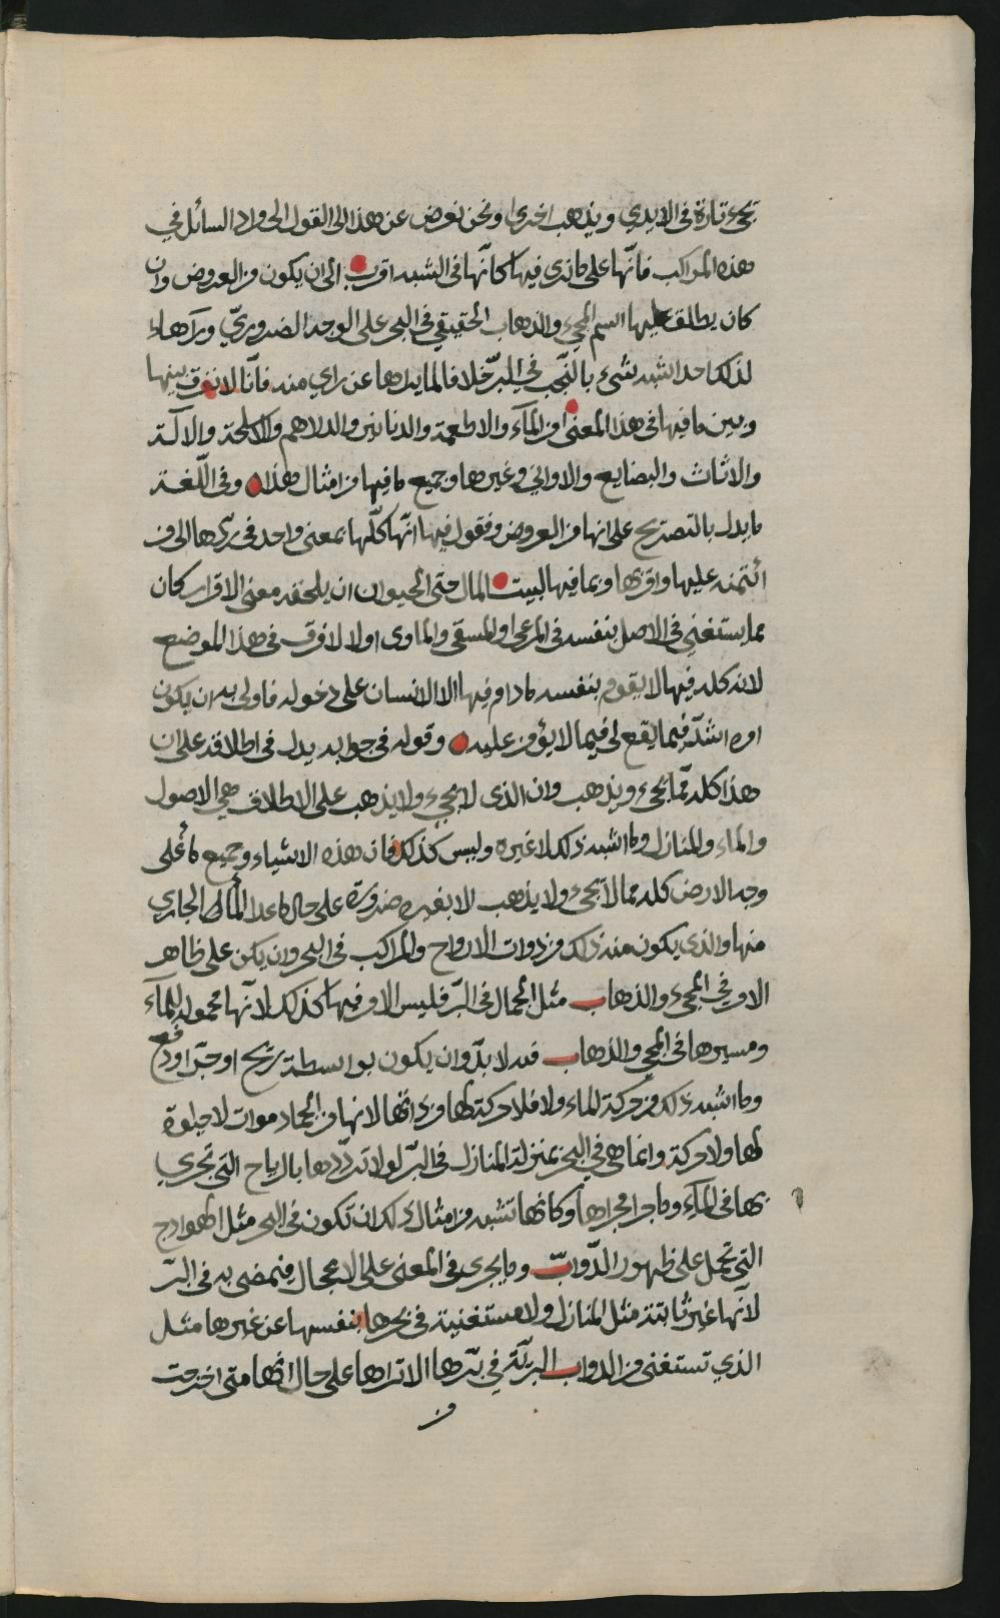 تجيء تارة في الايدي ويذهب اخرى ونحن نعرض عن هذا الى القول الى مراد السائل في
هذه المراكب فانّها على ما نرى فيها كانّها في الشبه اقرب الى ان يكون من العروض وان
كان يطلق عليها اسم المجيء والذهاب الحقيقي في البحر على الوجه الضروريّ ونراها
لذلك احد اشبه شيء بالنُّجُب في البرّ خلافا لما يدها عن راي منه فانّا لا نفرق بينها
وبين ما فيها في هذا المعنى من الماء والاطعمة والدنانير والدراهم والاسلحة والآلة
والاثاث والبضايع والاواني وغيرها وجميع ما فيها من امثال هذا وفي اللّغة
ما يدل بالتصريح على انها من العروض ونقول فيها انّها كلّها بمعنى واحد في ردّها الى من
ائتمنه عليها واقربها وبما فيها لبيت المال حتى الحيوان ان يلحقه معنى الاقرار كان
مما يستغني في الاصل بنفسه في المرعى والمسقى والماوى اولا لا فرق في هذا الموضع
لانه كله فيها لا يقوم بنفسه ما دام فيها الا الانسان على دخوله فاولى به ان يكون
امره اشدّ فيما يقع لي فيما لا يؤمن عليه وقوله في جوابه يدل في اطلاقه على ان
هذا كله ممّا يجيء ويذهب وان الذي لا يجيء ولا يذهب على الاطلاق هي الاصول
والماء والمنازل وما اشبه ذلك لا غيره وليس كذلك فان هذه الاشياء وجميع ما على
وجه الارض كله مما لا يجيء ولا يذهب الا بغيره ضرورة على حال ما عدا الماء الجاري
منها والذي يكون منه ذلك من ذوات الارواح والمراكب في البحر وان يكن على ظاهر
الامر في المجيء والذهاب مثل الجمال في البرّ فليس الامر فيها كذلك لانّها محمولة بالماء
ومسيرها في المجيء والذهاب فيه لا بدّ وان يكون بواسطة ريح او جرّ او دفع
وما اشبه ذلك من حركة الماء ولا فلا حركة لها من ذاتها لانها من الجماد موات لا حياة
لها ولا حركة وانما هي في البحر بمنزلة المنازل في البرّ لولا تردّدها بالرياح التي تجري
بها في الماء وما جرا مجراها وكانها تشبه من امثال ذلك ان تكون في البحر مثل الهوادج
التي تحمل على ظهور الدّوابّ وما يجري في المعنى على الاعجال فيمضى به في البرّ
لانّها غير ثابتة مثل المنازل ولا مستغنية في بحرها بنفسها عن غيرها مثل
الذي تستغني من الدواب البريّة في برّها الا تراها على حال انها متى اخرجت
من